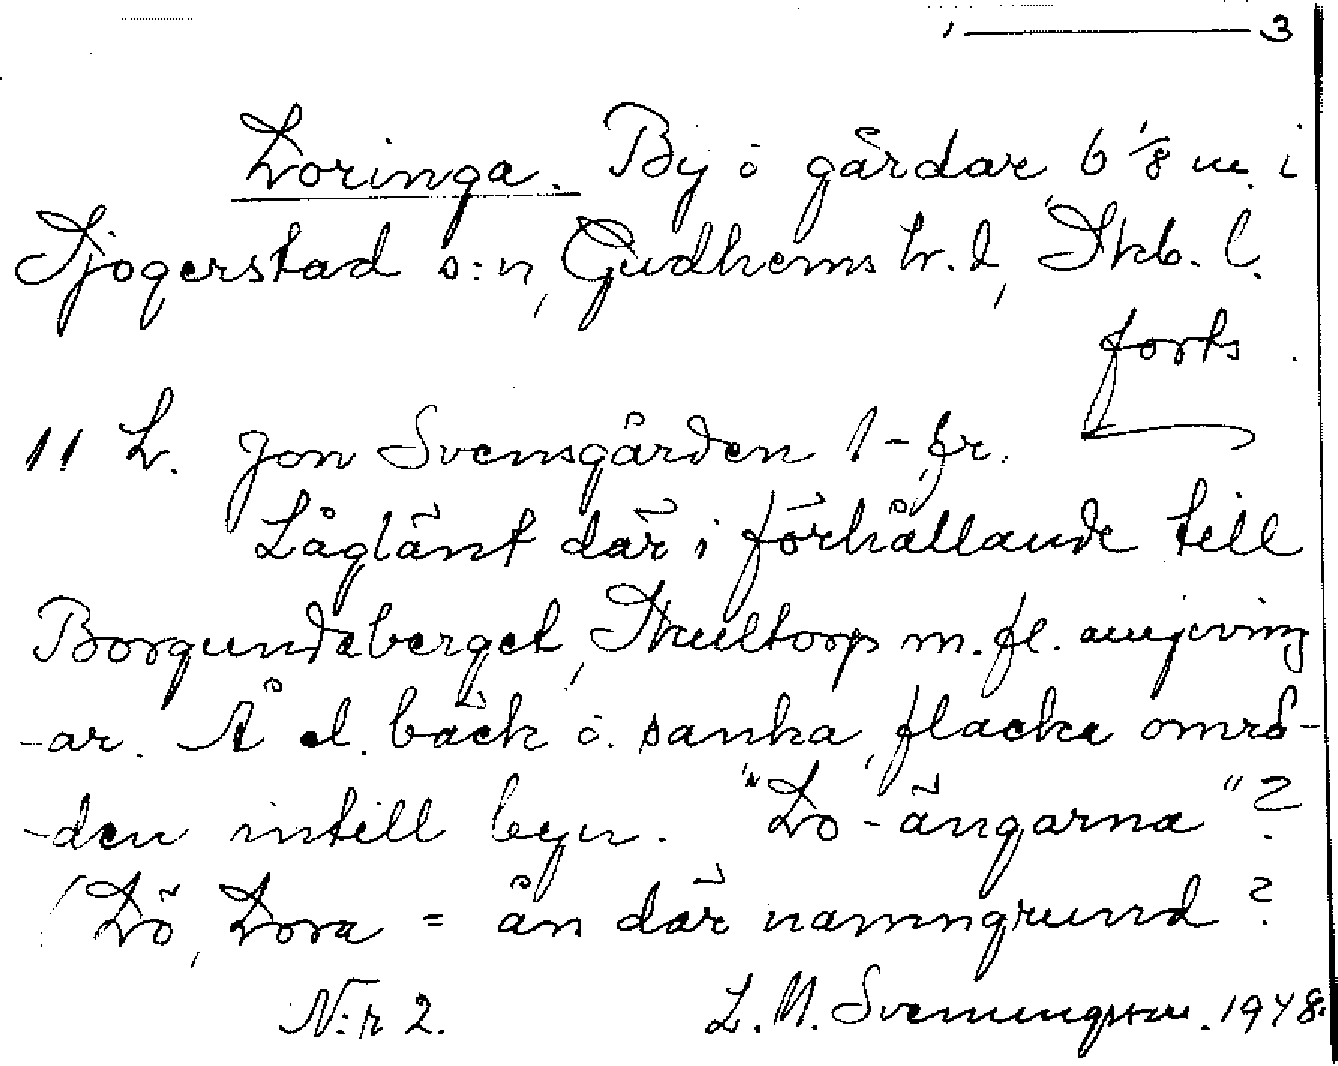 1 ——— 3
Loringa. By o gårdar 6 1/8 m. i
Sjogerstad s:n, Gudhems hr.d, Skb. l.
forts.
11 L. Jon Svensgården 1 - fr.
Låglänt där i förhållande till
Borgundaberget, Skultorp m. fl. omgivning
-ar. Å el. bäck o. sanka, flacka områ-
-den intill byn. "Lo-ängarna"?
(Lö, Lora = ån där namngrund?
N:r 2. L. M. Svenungsson. 1948.